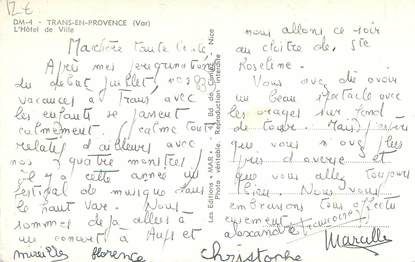 12 €
DM-4 - TRANS-EN-PROVENCE (Var)
L'Hôtel de Ville
Ma chère tante
Après mes pérégrinations
du début juillet, nos
vacances à Trans avec
les enfants se passent
calmement. (calme tout
relatif d'ailleurs avec
nos quatre monstres)
Il y a cette année un
festival de musique dans
le haut Var. Nous
sommes déjà allés à
un concert à Aups et
nous allons ce soir
au cloître de Ste
Roseline.
Vous avez dû avoir
un beau spectacle avec
les orages sur fond
de tours. Mais j'espère
que vous n'avez plus
pris d'averse et
que vous allez toujours
bien. Nous vous
embrassons tous affectu
eusement
alexandre Françoise
Marcelle
mireille florence Christophe
Les Editions "MAR" - Bd de - Nice
Photo véritable. Reproduction interdite